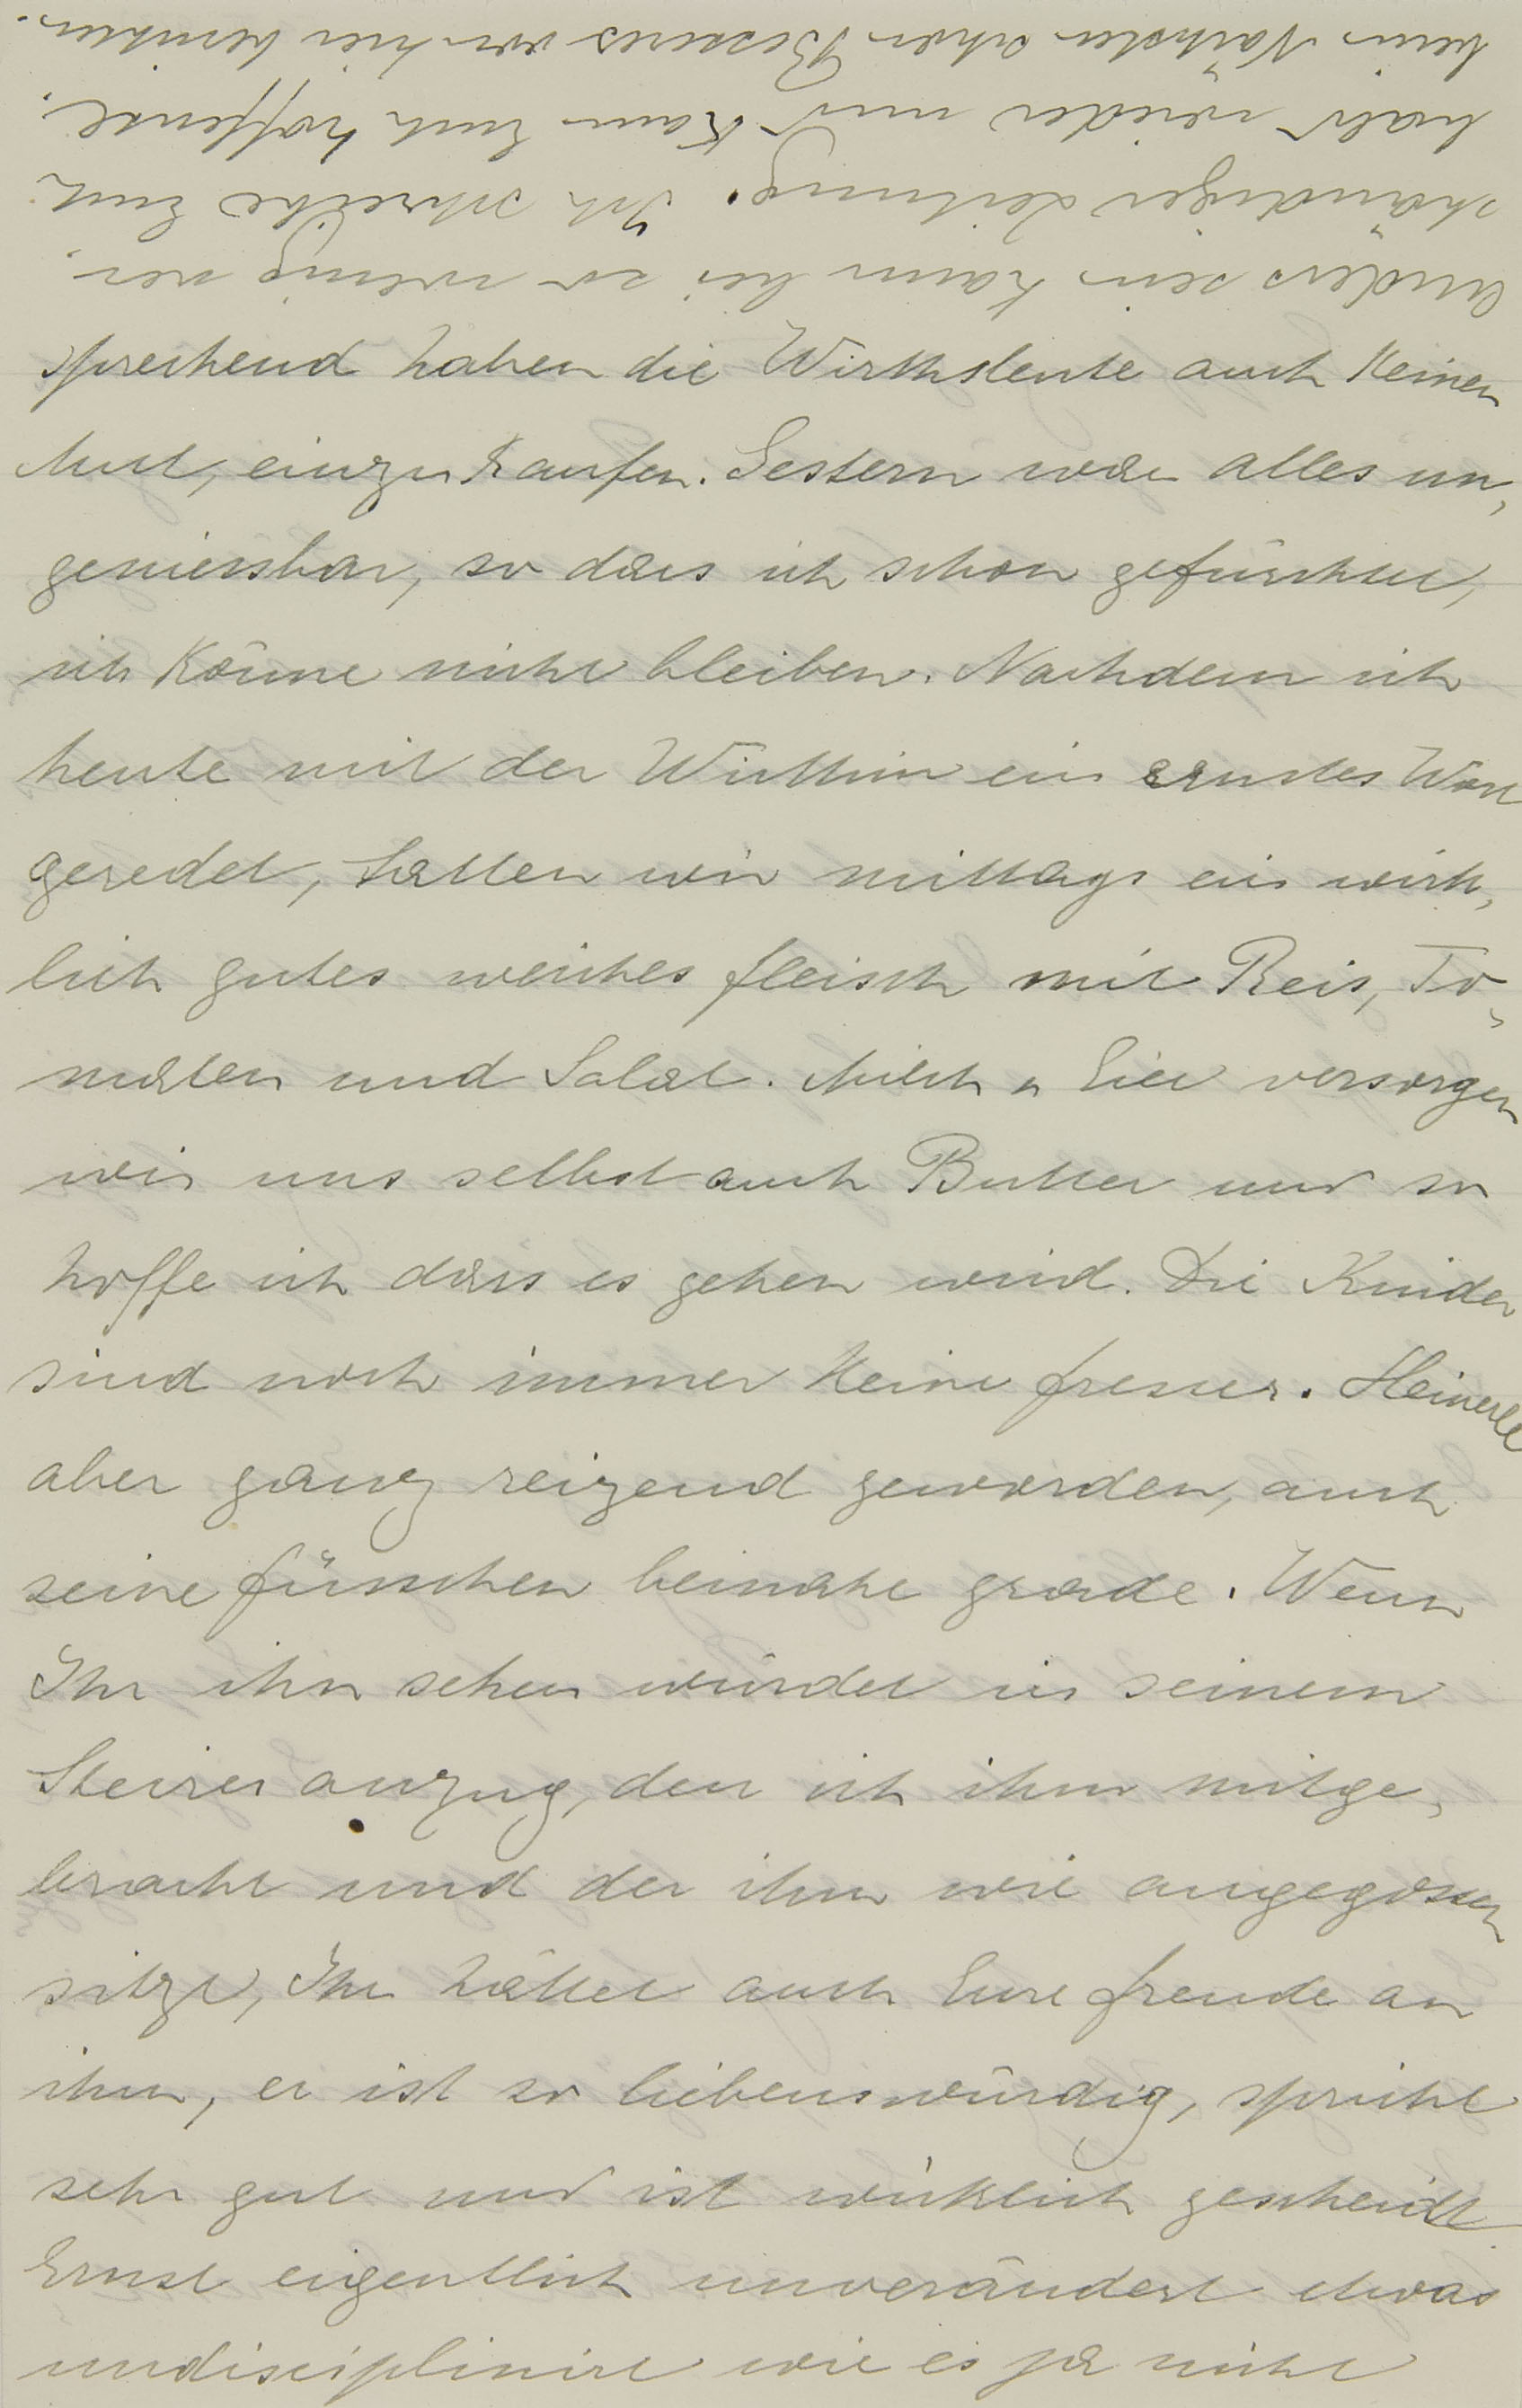 sprechend haben die Wirthsleute auch keinen
Mut, einzukaufen. Gestern war alles un,
geniessbar, so dass ich schon gefürchtet,
ich könne nicht bleiben. Nachdem ich
heute mit der Wirthin ein ernstes Wort
geredet, hatten wir mittags ein wirk,
lich gutes weiches Fleisch mit Reis, To,
maten und Salat. Milch u Eier versorgen
wir uns selbst auch Butter und so
hoffe ich dass es gehen wird. Die Kinder
sind noch immer keine Fresser. Heinerle
aber ganz reizend geworden, auch
seine Füsschen beinahe grade. Wenn
Ihr ihn sehen würdet in seinem
Steireranzug, den ich ihm mitge,
bracht und der ihm wie angegossen
sitzt, Ihr hättet auch Eure Freude an
ihm, er ist so liebenswürdig, spricht
sehr gut und ist wirklich gescheidt
Ernst eigentlich unverändert etwas
undisciplinirt wie es ja nicht
anders sein kann bei so wenig ver,
ständiger Leitung. Ich schreibe Euch
bald wieder und kann Euch hoffentl.
beim Nächsten schon Besseres von hier berichten.